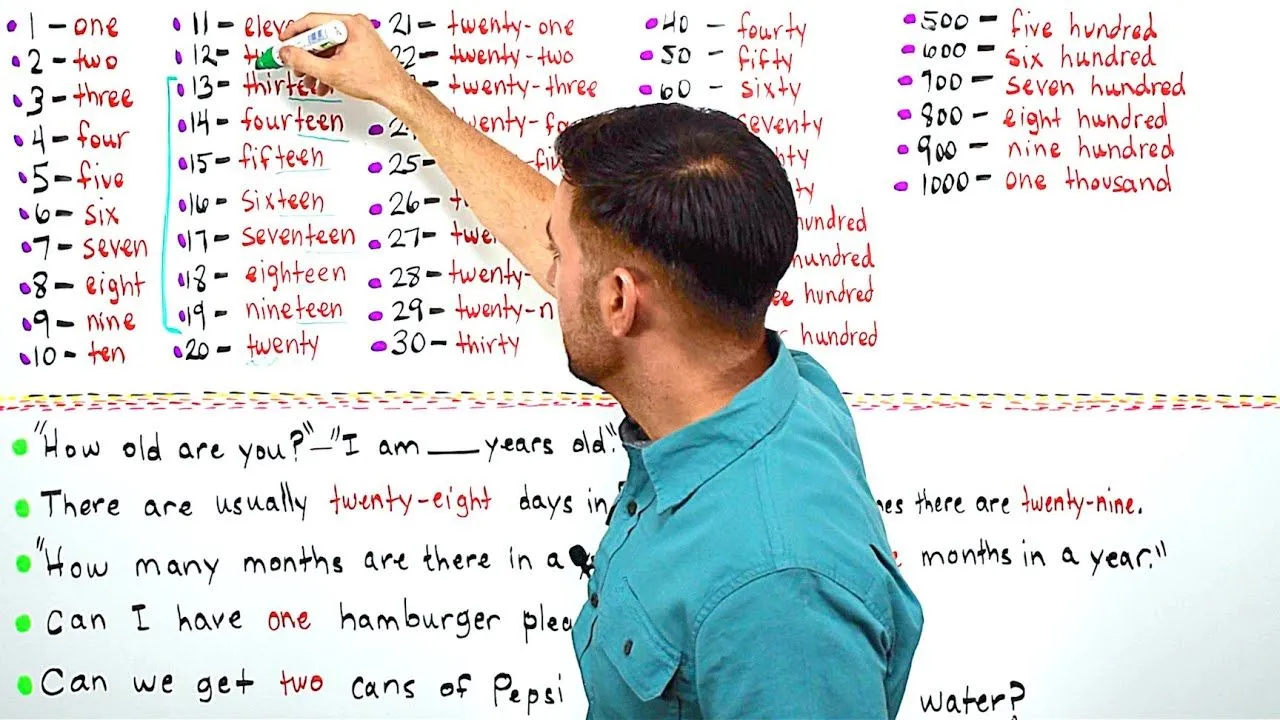 1 - one
2 - two
3 - three
4 - four
5 - five
6 - six
7 - seven
8 - eight
9 - nine
10 - ten
11 - eleve
12 -
13 - thirteen
14 - fourteen
15 - fifteen
16 - sixteen
17 - seventeen
18 - eighteen
19 - nineteen
20 - twenty
21 - twenty-one
22 - twenty-two
- twenty-three
twenty-fo
25 -
26 -
27 - twe
28 - twenty-
29 - twenty-n
30 - thirty
40 - fourty
50 - fifty
60 - sixty
seventy
hundred
hundred
hundred
hundred
500 - five hundred
600 - six hundred
700 - seven hundred
800 - eight hundred
900 - nine hundred
1000 - one thousand
"How old are you?" - "I am ___ years old."
There are usually twenty-eight days in there are twenty-nine.
"How many months are there in a months in a year."
Can I have one hamburger plea
Can we get two cans of Pepsi water?